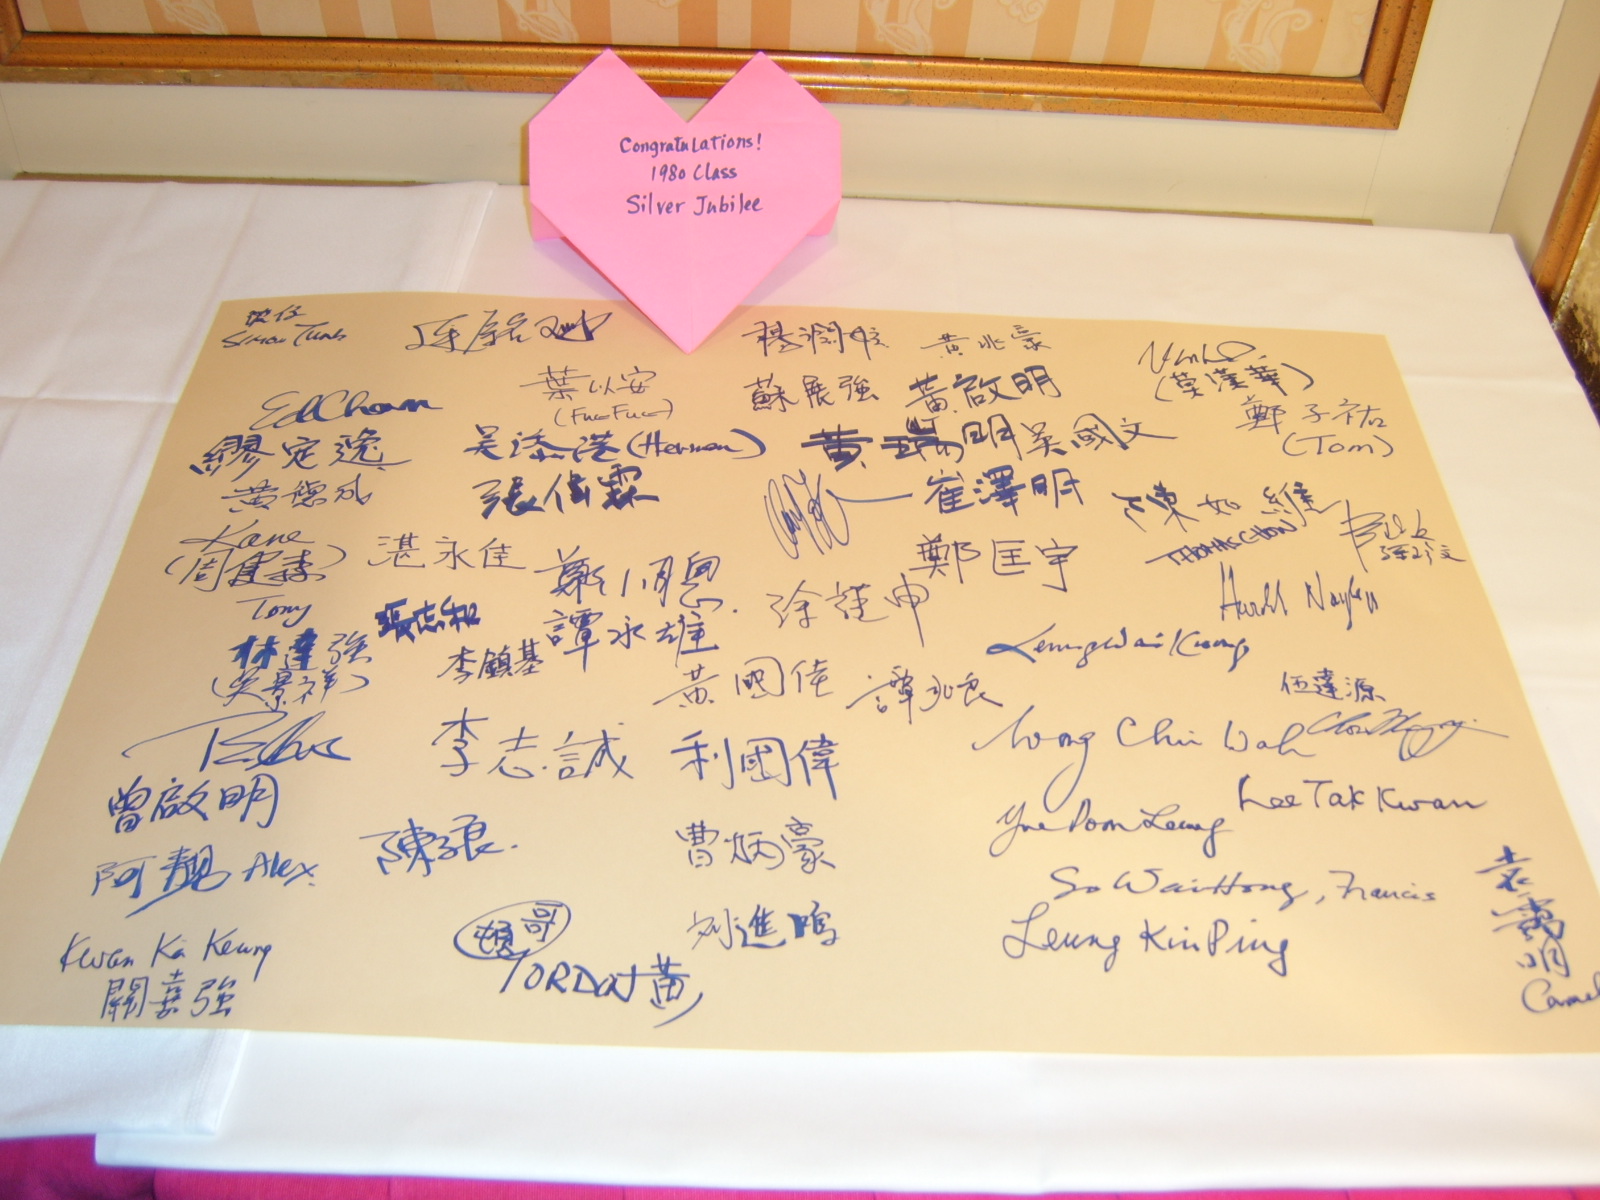 Congratulations!
1980 Class
Silver Jubilee
楊潤雄
黃兆豪
(莫漢華)
Ed Chan
葉以安
蘇展強
黃啟明
鄭子祐
(Tom)
繆定逸
吳添港 (Herman)
黃瑞明
吳國文
黃德成
張偉霖
崔澤明
陳如維
THOMAS CHAN
Kane
(周健森)
湛永佳
鄭小周恩
鄭匡宇
Tony
張志和
譚永雄
徐謹申
Leung Wai Kwong
林達強
(吳景祥)
李鎮基
黃國偉
譚永良
伍達源
李志誠
利國偉
Wong Chi Wah
曾啟明
Lee Tak Kwan
Yue Poon Leung
阿靚 Alex
陳子良.
曹炳豪
So Wai Hong, Francis
袁禹明
Camel
哥
劉進鳴
Leung Kin Ping
Kwan Ka Keung
關嘉強
黃